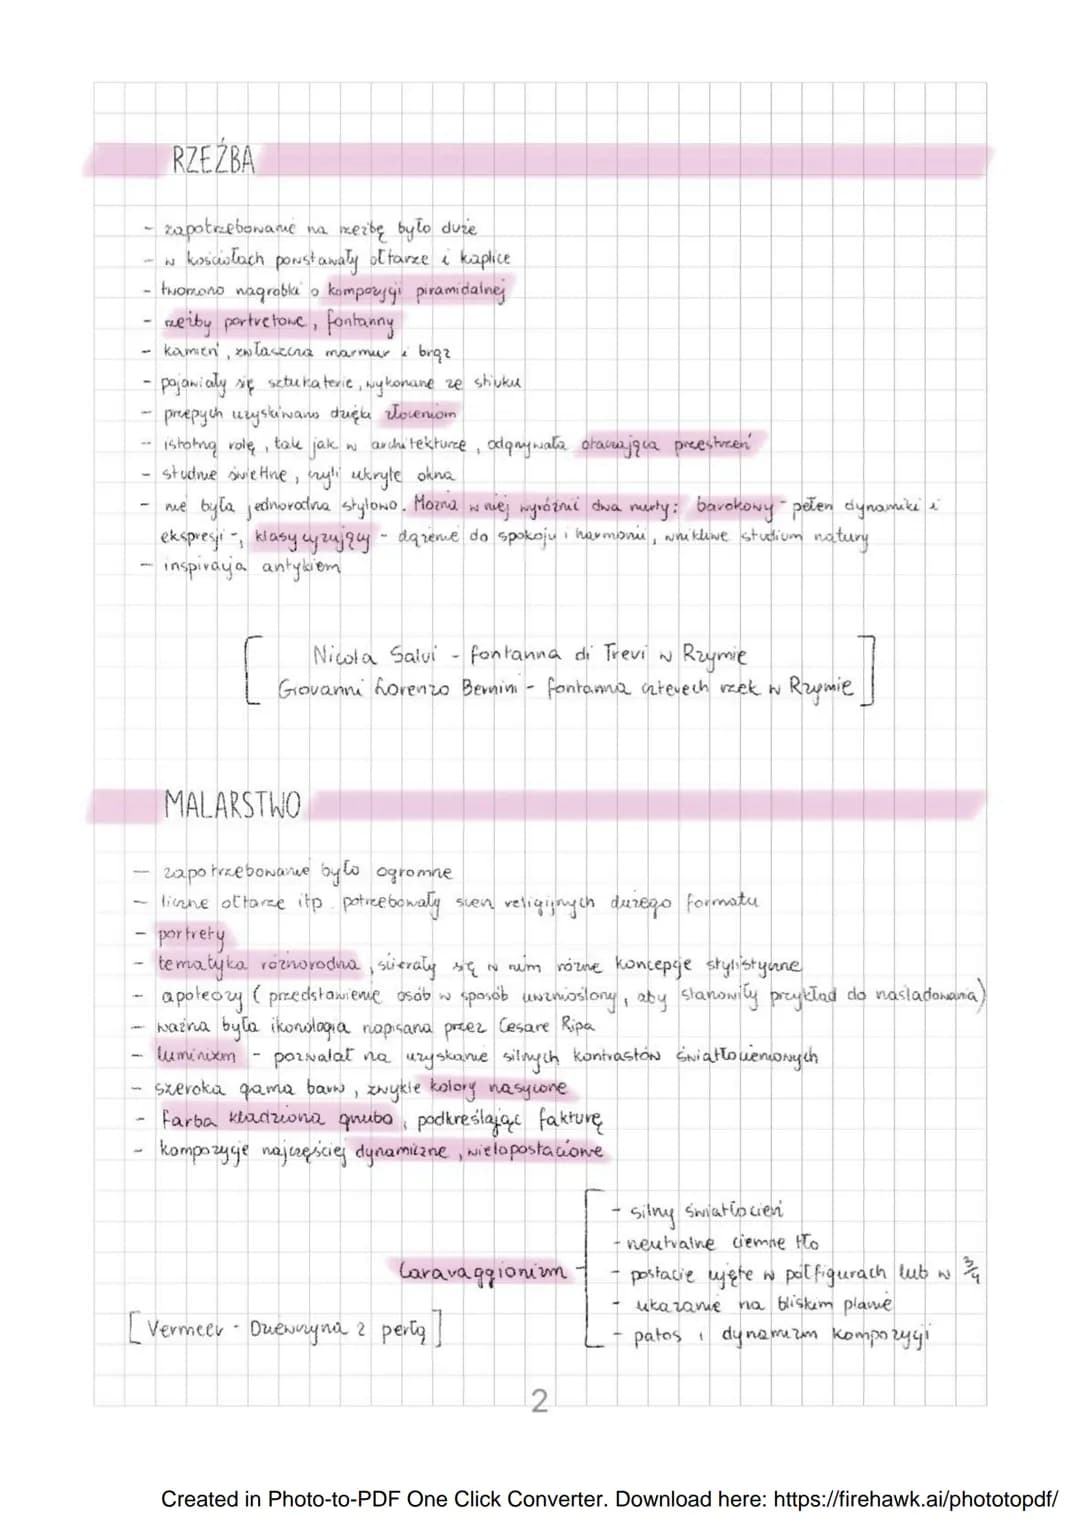 RZEŹBA
- zapotrzebowanie na rzeźbę było duże
- w kościołach powstawały ołtarze i kaplice
- tworzono nagrobki o kompozycji piramidalnej
- rzeźby portretowe, fontanny
- kamień, zwłaszcza marmur i brąz
- pojawiały się sztukaterie, wykonane ze stiuku
- przepych uzyskiwano dzięki złoceniom
- istotną rolę, tak jak w architekturze, odgrywała otaczająca przestrzeń
- studnie świetlne, czyli ukryte okna
- nie była jednorodna stylowo. Można w niej wyróżnić dwa nurty: barokowy - pełen dynamiki i
ekspresji -, klasycyzujący - dążenie do spokoju i harmonii, wnikliwe studium natury
- inspiracja antykiem
[ Nicola Salvi - fontanna di Trevi w Rzymie
Giovanni Lorenzo Bernini - fontanna czterech rzek w Rzymie ]
MALARSTWO
- zapotrzebowanie było ogromne
- liczne ołtarze itp. potrzebowały scen religijnych dużego formatu
- portrety
- tematyka różnorodna, ścierały się w nim różne koncepcje stylistyczne
- apoteozy (przedstawienie osób w sposób uwznioślony, aby stanowiły przykład do naśladowania)
- ważna była ikonologia napisana przez Cesare Ripa
- luminizm - pozwalał na uzyskanie silnych kontrastów światłocieniowych
- szeroka gama barw, zwykle kolory nasycone
- farba kładziona grubo, podkreślając fakturę
- kompozycje najczęściej dynamiczne, wielopostaciowe
Caravaggionizm
- silny światłocień
- neutralne ciemne tło
- postacie ujęte w półfigurach lub w 3/4
- ukazanie na bliskim planie
- patos i dynamizm kompozycji
[ Vermeer - Dziewczyna z perłą ]
2
Created in Photo-to-PDF One Click Converter. Download here: https://firehawk.ai/phototopdf/